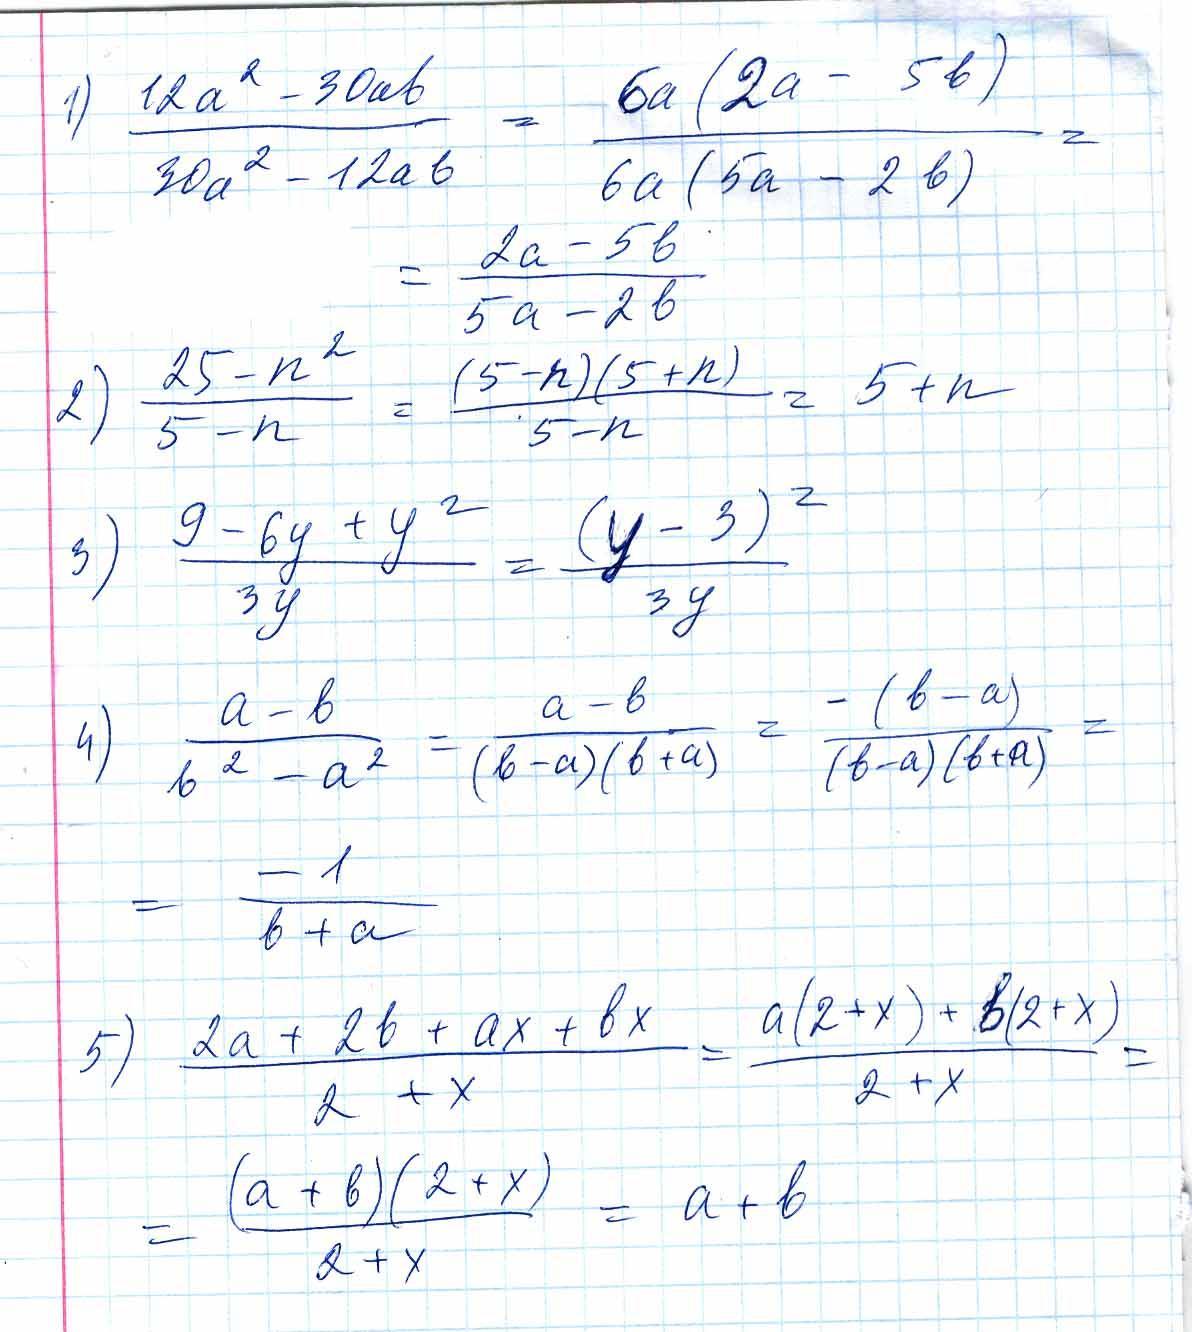 1) (12a² - 30ab)/(30a² - 12ab) = (6a(2a - 5b))/(6a(5a - 2b)) =
= (2a - 5b)/(5a - 2b)
2) (25 - n²)/(5 - n) = ((5 - n)(5 + n))/(5 - n) = 5 + n
3) (9 - 6y + y²)/(3y) = (y - 3)²/(3y)
4) (a - b)/(b² - a²) = (a - b)/((b - a)(b + a)) = (-(b - a))/((b - a)(b + a)) =
= (-1)/(b + a)
5) (2a + 2b + ax + bx)/(2 + x) = (a(2 + x) + b(2 + x))/(2 + x) =
= ((a + b)(2 + x))/(2 + x) = a + b